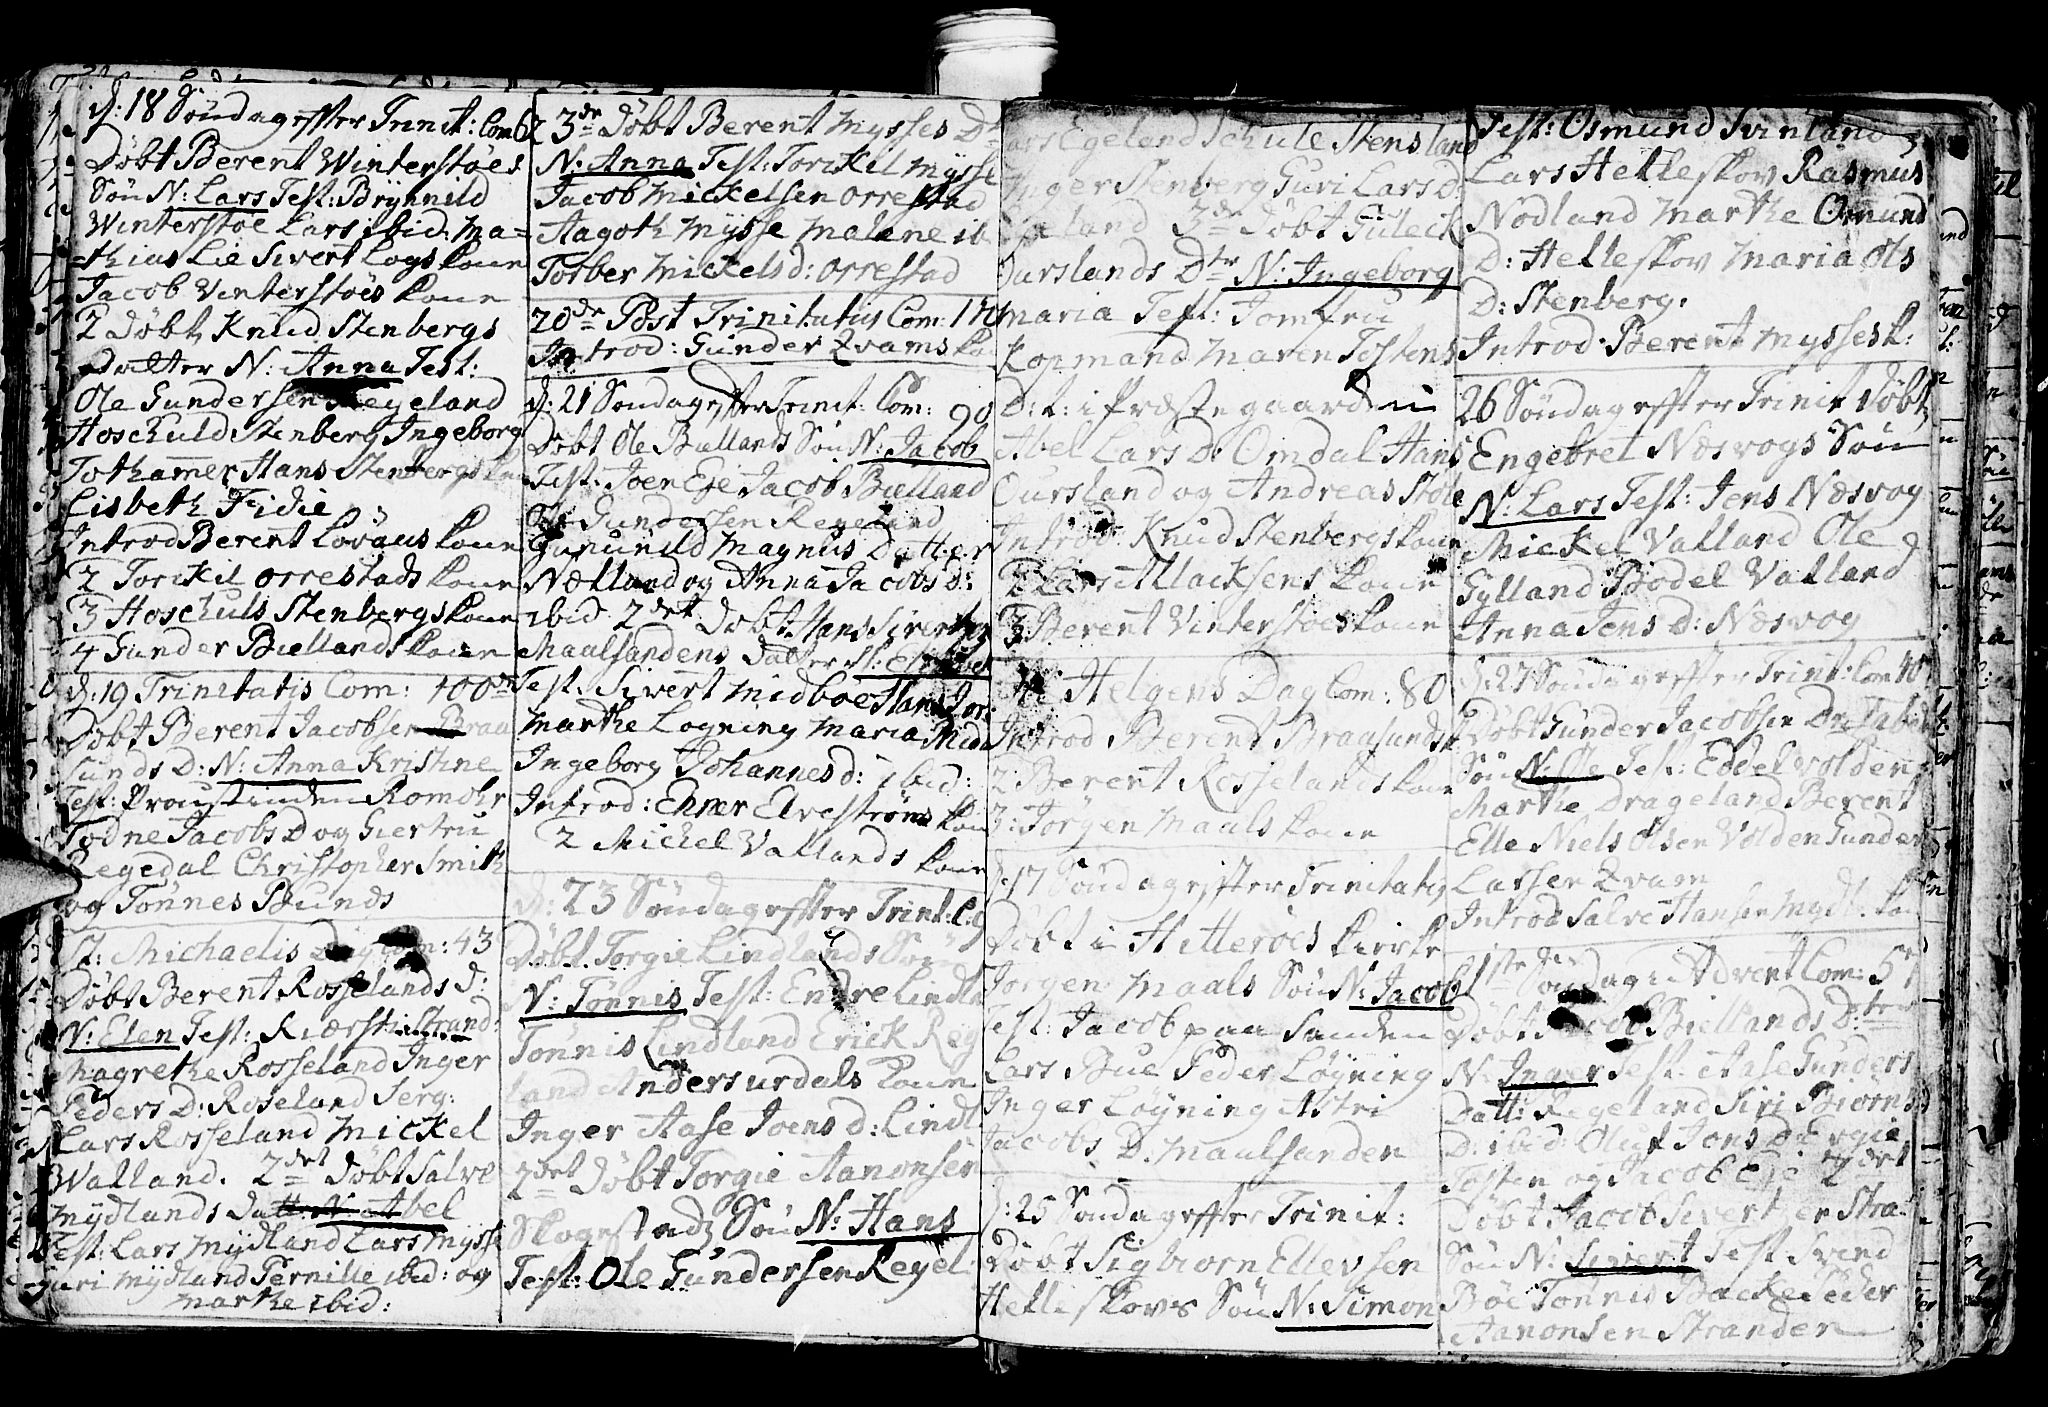 d: 18 Søndag effter Trinit: Com 6
Døbt Berent Winterstøes
Søn N: Lars Test: Brynnild
Winterstøe Lars ibid: Ma=
=thias Lie Sivert Logs kone
Jacob Vinterstøes kone
2 Døbt Knud Stenbergs
datter N: Anna Test:
Ole Gundersen Regeland
Hoschuld Stenberg Ingeborg
Tothamer Hans Stenbergs
Lisbeth Fidie
Introd Berent Lovaas kone
2 Torckil Orrestads kone
3 Hoschuls Stenbergs kone
4 Gunder Biellands kone
d: 19 Trinitatis Com: 100
Døbt Berent Jacobsen Braa
sunds D: N: Anna Kristine
Test: Proustinden Romohr
Todne Jacobs D og Giertru
Regedal Christopher Smith
og Tønnes Sunds
St: Michaelis Dag Com: 43
Døbt Berent Rosselands d:
N: Elen Test: Kiersti Strand:
Magrethe Rosseland Inger
Peders D: Roseland Serg:
Lars Rosseland Mickel
Walland. 2det Døbt Salve
Mydlands Datt: N: Abel
Test: Lars Mydland Lars Mysse
Guri Mydland Pernille ibid: og
Marthe ibid:
3de Døbt Berent Mysses Dt
N: Anna Test: Torckil Mysse
Jacob Mickelsen Orrestad
Aagoth Mysse Malene ib
Torber Mickels d: Orrestad
20de Post Trinitatis Com: 170
Introd: Gunder Qvams kone
d: 21 Søndag effter Trinit: Com: 90
Døbt Ole Biellands Søn N: Jacob
Test: Joen Eje Jacob Bielland
Ole Gundersen Regeland
Gunnild Magnus Datter
Nætland og Anna Jacobs d:
ibid 2det Døbt Hans Siverts
Maalsandens Datter N:
Test: Sivert Midboe Hans Jor:
Marthe Logning Maria Mid
Ingeborg Johannes d: ibid:
Introd: Ehner Elvestrøms kone
2 Mickel Vallands kone
d: 23 Søndag effter Trinit: C: 9
Døbt Torgie Lindlands Søn
N: Tønnis Test: Endre Lindla
Tønnis Lindland Erick Reg
land Anders Urdals kone
Inger Aase Joens d: Lindl
2det Døbt Torgie Aanonsen
Skogestads Søn N: Hans
Test: Ole Gundersen Regel:
Lars Egeland Schule Stensland
Inger Stenberg Guri Lars D:
Egeland 3de Døbt Guleck
Ourslands Dtr N: Ingeborg
Maria Test: Jomfru
Kopmand Maren Tostens
D: t: i Præstegaarden
Abel Lars D: Omdal Hans
Oursland og Andreas Støle
Introd: Knud Stenbergs kone
2 Lars Mlacksens kone
3 Berent Vinterstoes kone
Helgens Dag Com: 80
Introd Berent Braasunds k
2: Berent Rosselands kone
3: Jørgen Maals kone
d: 17 Søndag effter Trinitatis
Døbt i Hitterøes kirke
Jørgen Maals Søn N: Jacob
Test: Jacob paa Sanden
Lars Bue Peder Løyning
Inger Løyning Astri
Jacobs D: Maalsanden
d: 25 Søndag effter Trinit:
Døbt Sigbiørn Ellevsen
Helleskovs Søn N: Simon
Test: Osmund Svinland
Lars Helleskov Rasmus
Nodland Marthe Osmund
D: Helleskov Maria Ols
D: Stenberg.
Introd: Berent Mysses k:
26 Søndag effter Trinit Døbt
Engebret Næsvogs Søn
N: Lars Test: Jens Næsvog
Mickel Valland Ole
Gylland Bodel Valland
Anna Jens D: Næsvog
d: 27 Søndag effter Trinit: Com 40
Døbt Gunder Jacobsen Dr
Søn N: Ole Test: Eddel Volden
Marthe Drageland Berent
Elle Niels Olsen Volden Gunder
Larsen Qvam
Introd Salve Hansen Mydl: kone
1ste Søndag i Advent Com: 57
Døbt Jacob Biellands Dtter
N: Inger Test: Aase Gunders
Datt: Regeland Siri Biørns
D: ibid: Oluf Jons D: Ergie
Tosten og Jacob Eje 2det
Døbt Jacob Sivertsen Stra:
Søn N: Sivert Test Svend
Bøe Tønnes Backe Peder
Aanonsen Stranden